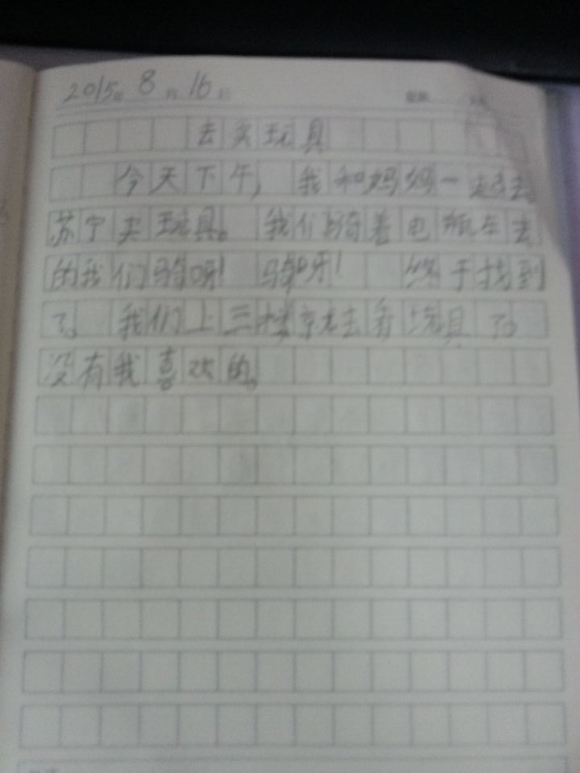 2015年 8月 16日
去买玩具
今天下午，我和妈妈一起去
苏宁买玩具。我们骑着电瓶车去
的我们骑呀！骑呀！终于找到
了。我们上三楼去看玩具了。
没有我喜欢的。